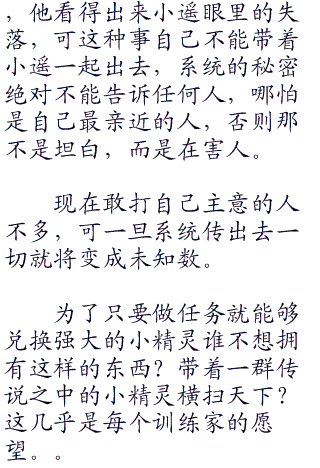 ，他看得出来小遥眼里的失
落，可这种事自己不能带着
小遥一起出去，系统的秘密
绝对不能告诉任何人，哪怕
是自己最亲近的人，否则那
不是坦白，而是在害人。
现在敢打自己主意的人
不多，可一旦系统传出去一
切就将变成未知数。
为了只要做任务就能够
兑换强大的小精灵谁不想拥
有这样的东西？带着一群传
说之中的小精灵横扫天下？
这几乎是每个训练家的愿
望。。